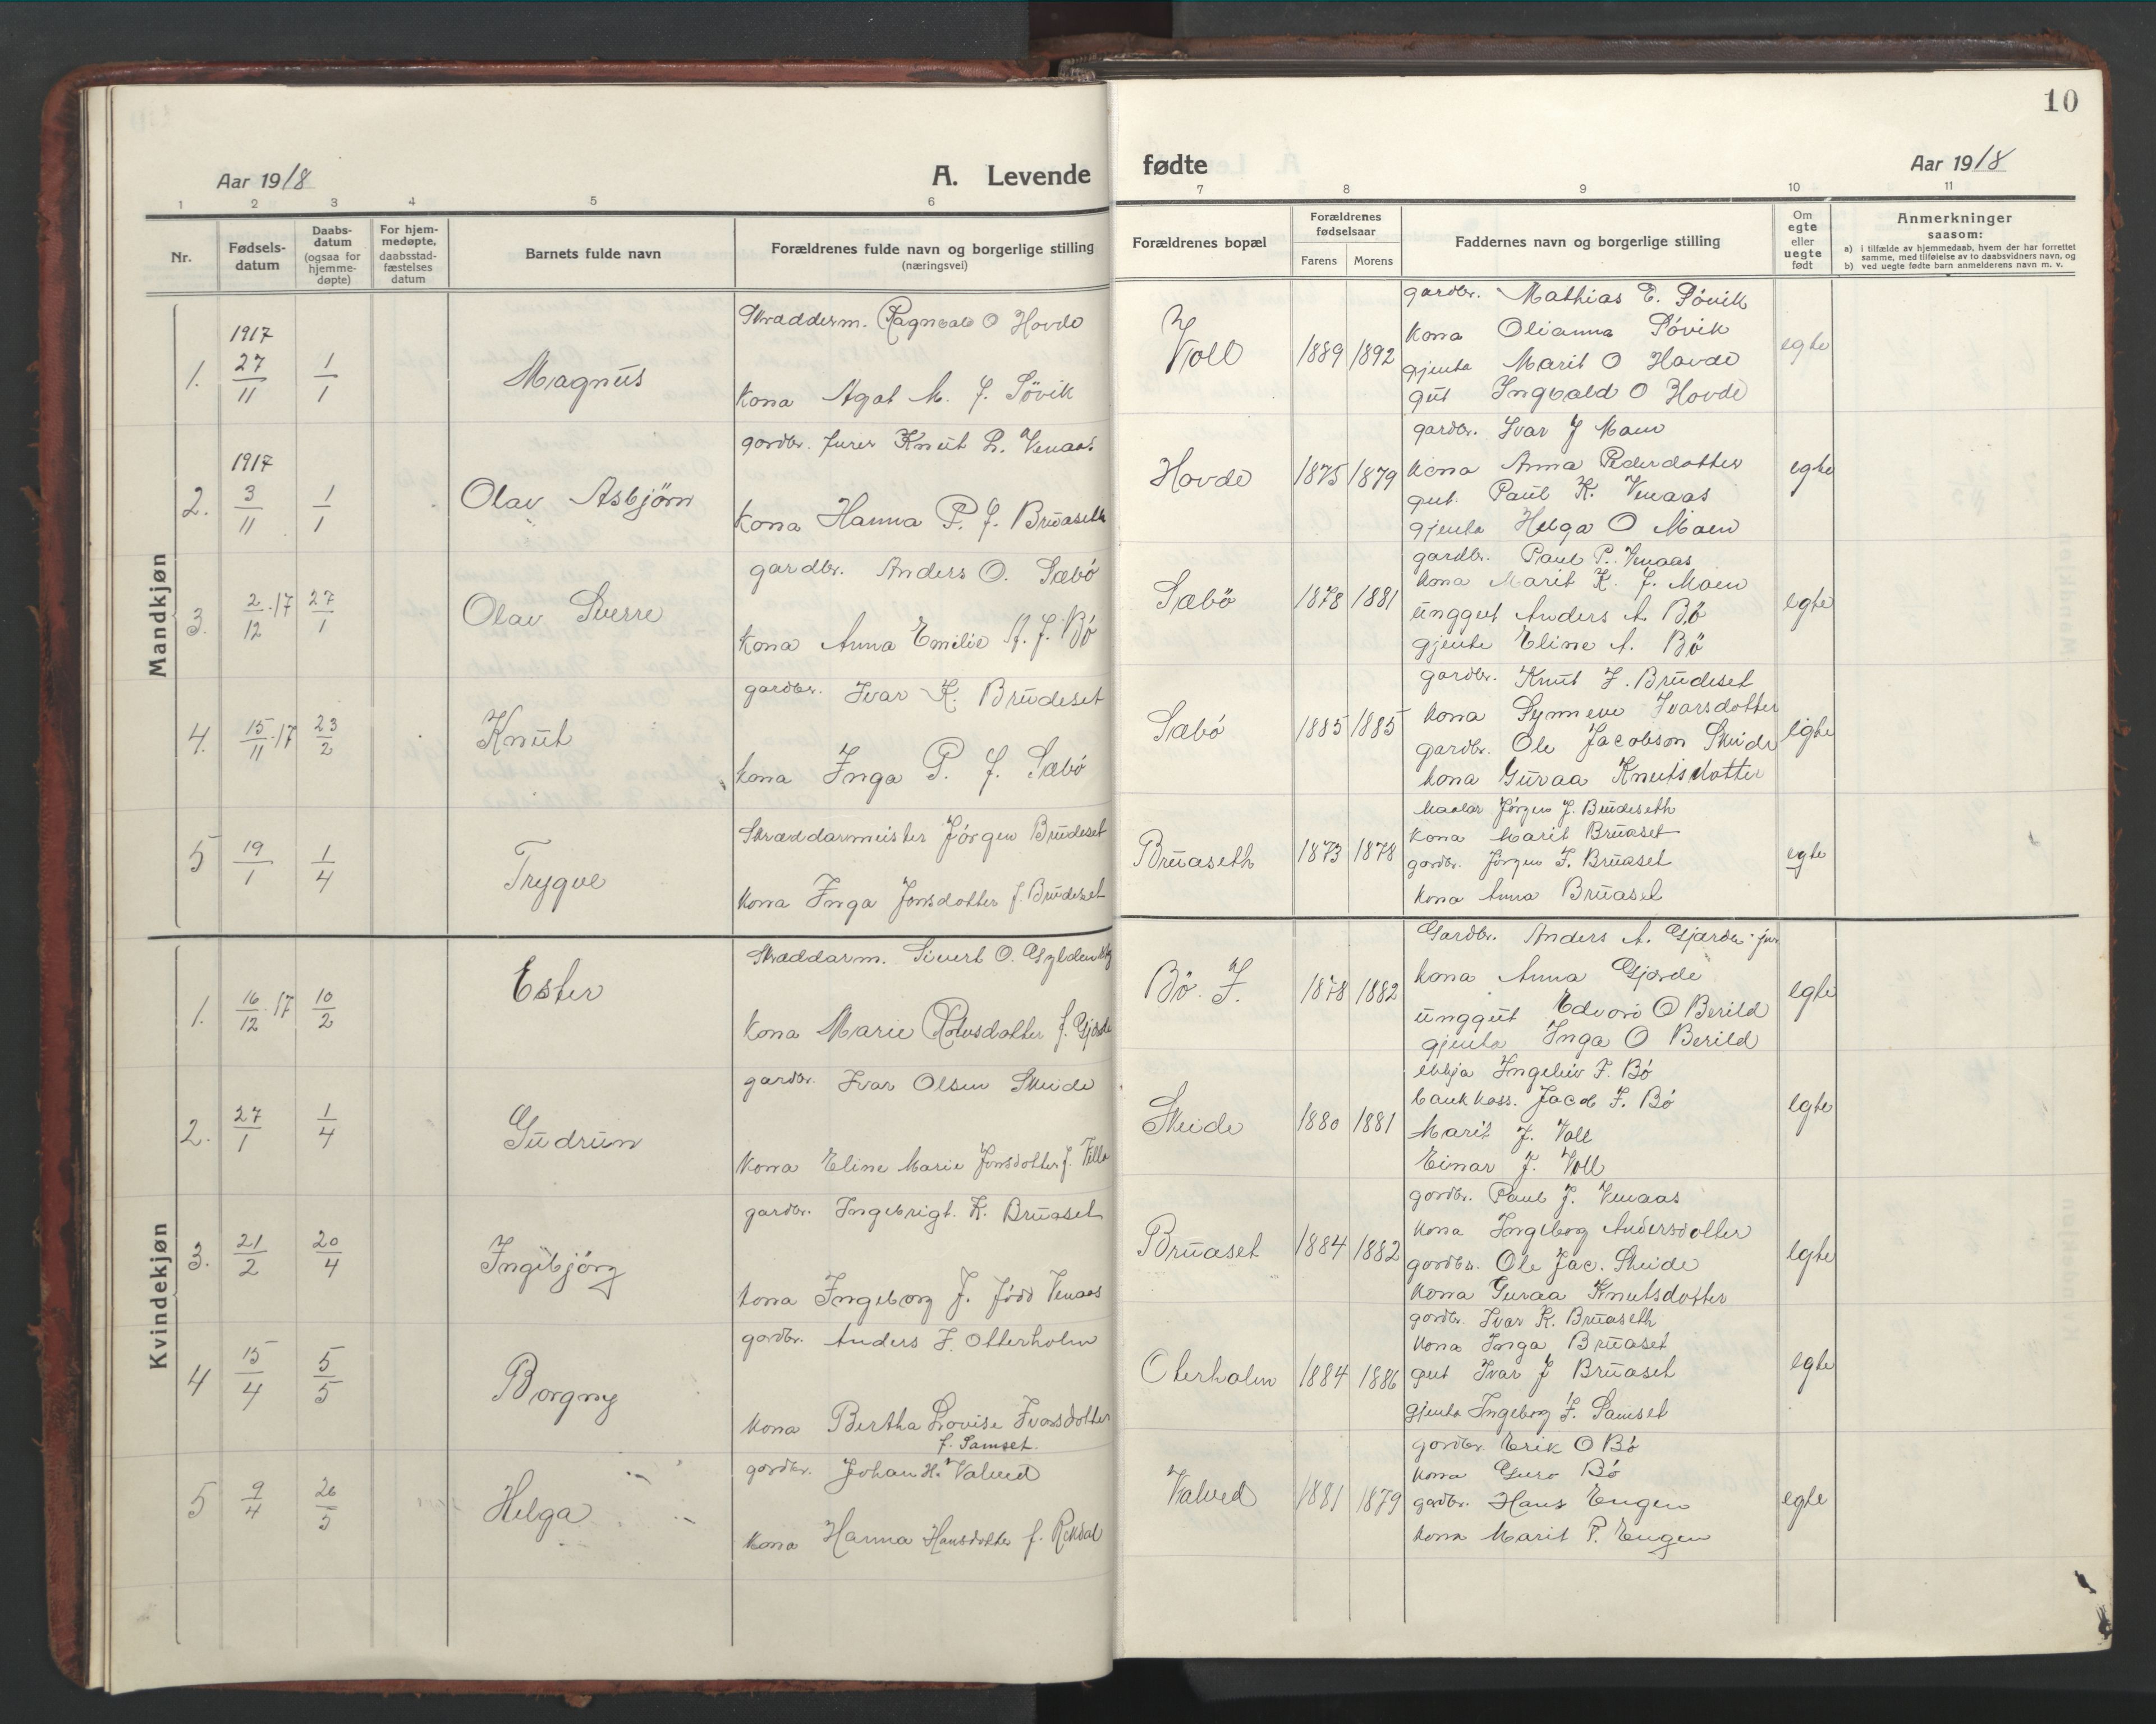 10
Aar 1918
A. Levende
fødte
Aar 1918
1 2 3 4 5 6 7 8 9 10 11
Nr.
Fødsels-
datum
Daabs-
datum
(ogsaa for
hjemme-
døpte)
For hjem-
medøpte,
daabsstad-
fæstelses
datum
Barnets fulde navn
Forældrenes fulde navn og borgerlige stilling
(næringsvei)
Forældrenes bopæl
Forældrenes
fødselsaar
Farens Morens
Faddernes navn og borgerlige stilling
Om
egte
eller
uegte
født
Anmerkninger
saasom:
a) i tilfælde av hjemmedaab, hvem der har forrettet
samme, med tilføielse av to daabsvidners navn, og
b) ved uegte fødte barn anmelderens navn m. v.
Mandkjøn
1. 1917 27/11 1/1 Magnus
Skradderm. Ragnvald O Hovde
Kona Agat M. f. Søvik
Voll 1889 1892
gardbr. Mathias E. Søvik
Kona Olianna Søvik
gjenta Marit O Hovde
gut Ingvald O Hovde
egte
2. 1917 3/11 1/1 Olav Asbjörn
gardbr. furer Knut L. Venaas
Kona Hanna P. f. Brüaseth
Hovde 1875 1879
gardbr. Ivar J Maen
Kona Anna Pedersdotter
gut. Paul K. Venaas
gjenta Helga O Maen
egte
3. 2/12.17 27/1 Olav Sverre
gardbr. Anders O. Sæbö
Kona Anna Emilie A. f. Bö
Sæbö 1878 1881
gardbr. Paul P. Venaas
kona Marit K. f. Maen
unggut Anders A. Bö
gjenta Eline A. Bö
egte
4. 15/11.17 23/2 Knut
gardbr. Ivar K. Brudeset
kona Inga P. f. Sæbö
Sæbö 1885 1885
gardbr. Knut J. Brudeset
kona Synneve Ivarsdotter
gardbr. Ole Jacobson Skeide
kona Guraa Knutsdotter
egte
5 19/1 1/4 Trygve
Skræddarmeister Jörgen Brudeset
Kona Inga Jonsdotter f. Brudeset
Brüaseth 1873 1878
Maalar Jörgen J. Brudeseth
Kona Marit Brüaset
gardbr. Jörgen I. Brüaset
Kona Anna Brüaset
egte
Kvindekjøn
1. 16/12.17 10/2 Ester
Skræddarm. Sivert O.
Kona Marie f. Gjærde
Bö. I. 1878 1882
Gardbr. Anders A. Gjærde
kona Anna Gjærde
unggut Edvard O Berild
gjenta Inga O Berild
egte
2. 27/1 1/4 Gudrun
gardbr. Ivar Olsen Skeide
Kona Eline Marie Jonsdotter f. Villa
Skeide 1880 1881
ekkja Ingeleiv I. Bö
bankkass. Jacob I. Bö
Marit J. Voll
Einar J. Voll
egte
3. 21/2 20/4 Ingibjörg
gardbr. Ingebrigt. K. Brüaset
kona Ingeborg J. född Venaas
Brüaset 1884 1882
gardbr. Paul J. Venaas
Kona Ingeborg Andersdotter
gardbr. Ole Jac. Skeide
Kona Guraa Knutsdotter
egte
4 15/4 5/5 Borgny
gardbr. Anders I. Otterholm
Kona Bertha Lovise Ivarsdotter
f. Samset.
Oterholm 1884 1886
gardbr. Ivar K. Brüaseth
Kona Inga Brüaset
gut Ivar J Brüaset
gjenta Ingeborg I. Samset
egte
5 9/4 26/5 Helga
gardbr. Johan H. Valved
Kona Hanna Hansdotter f. Rekdal
Valved 1881 1879
gardbr. Erik O Bö
Kona Guro Bö
gardbr. Hans Engen
kona Marit P. Engen
egte